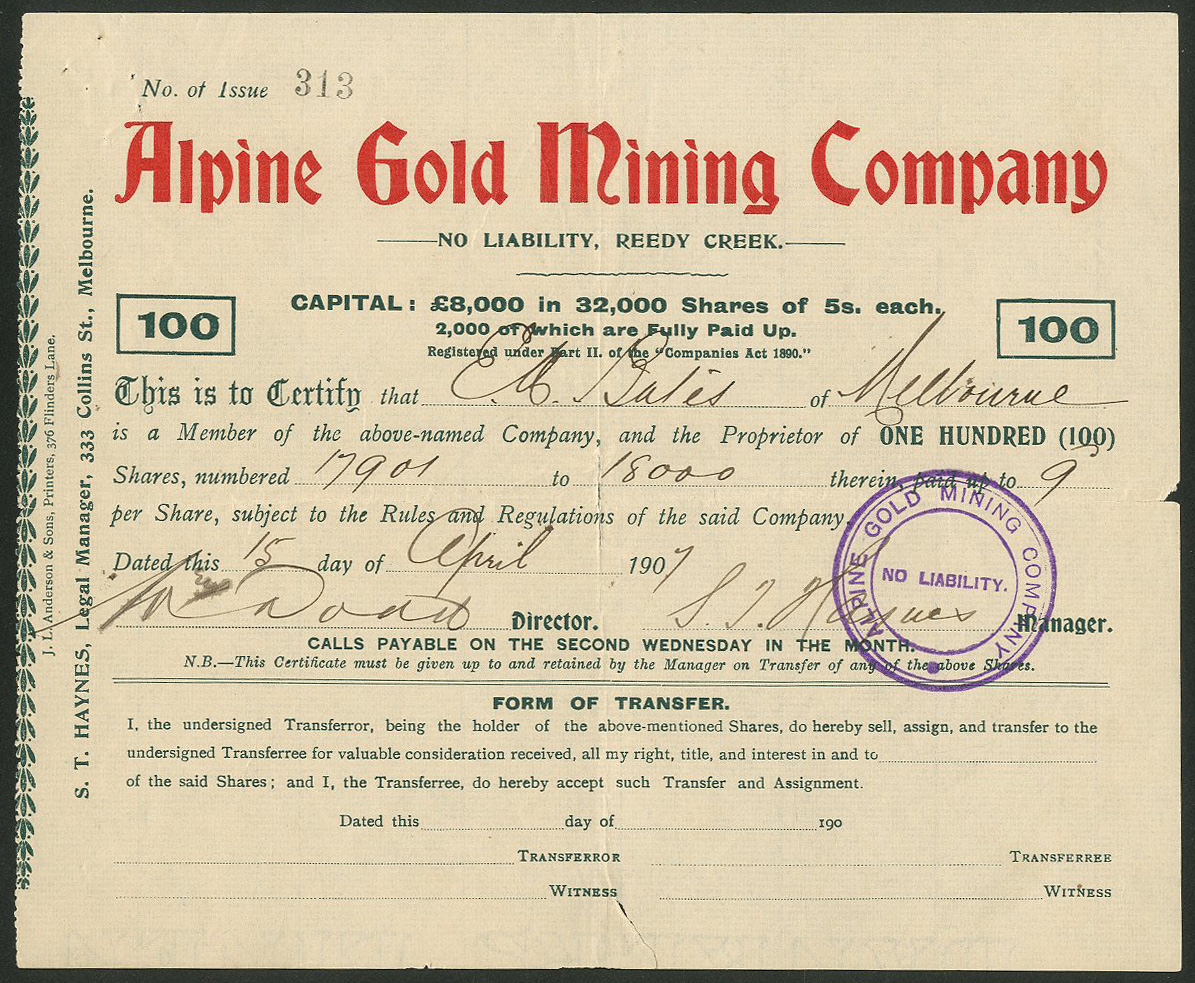 No. of Issue 313
Alpine Gold Mining Company
NO LIABILITY, REEDY CREEK.
CAPITAL: £8,000 in 32,000 Shares of 5s. each.
100
100
2,000 of which are Fully Paid Up.
Registered under Part II. of the "Companies Act 1890."
This is to Certify that E. A. Bates of Melbourne
is a Member of the above-named Company, and the Proprietor of ONE HUNDRED (100)
Shares, numbered 17901 to 18000 therein, paid up to 9
per Share, subject to the Rules and Regulations of the said Company.
Dated this 15 day of April 1907
Director. S. T. Haynes Manager.
CALLS PAYABLE ON THE SECOND WEDNESDAY IN THE MONTH.
N.B.—This Certificate must be given up to and retained by the Manager on Transfer of any of the above Shares.
ALPINE GOLD MINING COMPANY
NO LIABILITY.
FORM OF TRANSFER.
I, the undersigned Transferror, being the holder of the above-mentioned Shares, do hereby sell, assign, and transfer to the
undersigned Transferree for valuable consideration received, all my right, title, and interest in and to
of the said Shares; and I, the Transferree, do hereby accept such Transfer and Assignment.
Dated this day of 190
TRANSFERROR TRANSFERREE
WITNESS WITNESS
S. T. HAYNES, Legal Manager, 333 Collins St., Melbourne.
J. L. Anderson & Sons, Printers, 376 Flinders Lane.